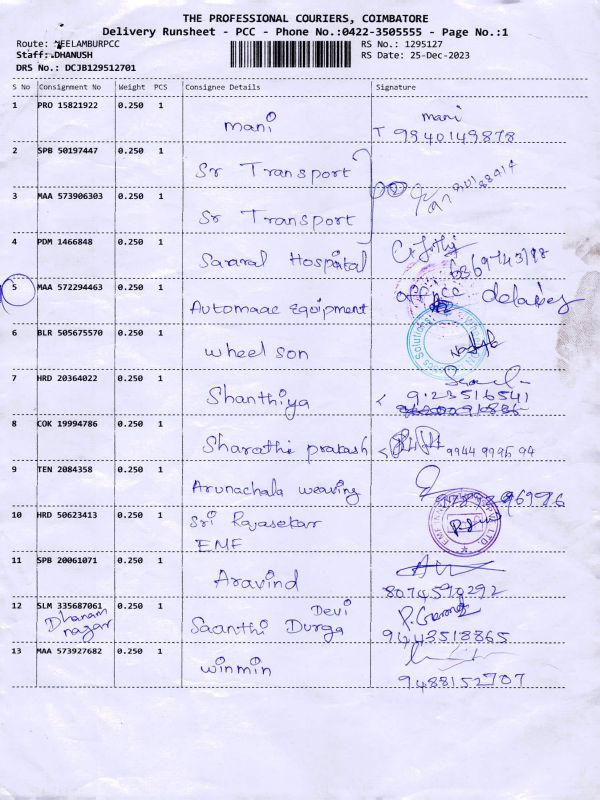 THE PROFESSIONAL COURIERS, COIMBATORE
Delivery Runsheet - PCC - Phone No.:0422-3505555 - Page No.:1
Route: NEELAMBURPCC RS No.: 1295127
Staff: DHANUSH RS Date: 25-Dec-2023
DRS No.: DCJB129512701
S No Consignment No Weight PCS Consignee Details Signature
1 PRO 15821922 0.250 1 mani mani
T 9940149878
2 SPB 50197447 0.250 1 Sr Transport
3 MAA 573906303 0.250 1 Sr Transport
4 PDM 1466848 0.250 1 Sararal Hospital
5 MAA 572294463 0.250 1 Automaac equipment office
6 BLR 505675570 0.250 1 wheel son
Solutions
7 HRD 20364022 0.250 1 Shanthiya
9123516541
8 COK 19994786 0.250 1 Sharathi prakash 9944 9995 94
9 TEN 2084358 0.250 1 Arunachala weaving
10 HRD 50623413 0.250 1 Sri Rajasekar
EMF
EMF LTD.
11 SPB 20061071 0.250 1 Aravind
8074590292
12 SLM 335687061 0.250 1 Saanthi Durga Devi
Dhanam
nagar
9443518865
13 MAA 573927682 0.250 1 winmin
9488152707